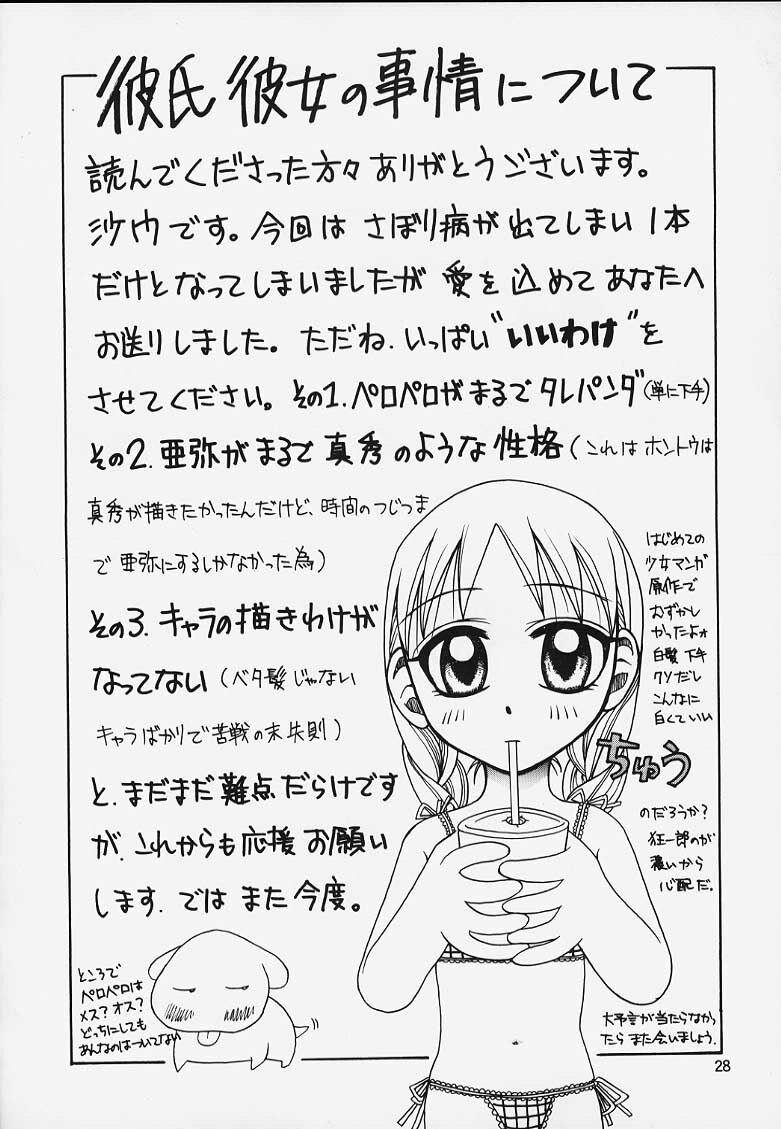 彼氏彼女の事情について
読んでくださった方々ありがとうございます。
沙ウです。今回は さぼり病が出てしまい 1本
だけとなってしまいましたが 愛を込めて あなたへ
お送りしました。ただね、いっぱい"いいわけ"を
させてください。その1.ペロペロがまるでタレパンダ(単に下手)
その2.亜弥がまるで真秀のような性格(これはホントウは
真秀が描きたかったんだけど、時間のつじつま
で亜弥にするしかなかった為)
その3.キャラの描きわけが
なってない(ベタ髪じゃない
キャラばかりで苦戦の末失則)
と、まだまだ難点だらけです
が、これからも応援お願い
します。では また今度。
はじめての
少女マンガ
原作で
むずかし
かったよォ
白髪 下手
クソだし
こんなに
白くていい
のだろうか?
狂一郎のが
濃いから
心配だ。
ちゅう
ところで
ペロペロは
メス?オス?
どっちにしても
あんなのはついてない
大予言が当たらなかっ
たら また会いましょう.
28